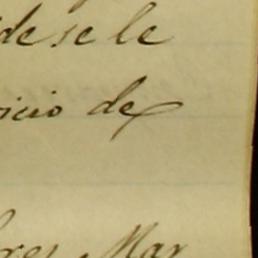 de se le
icio de
res, Mar